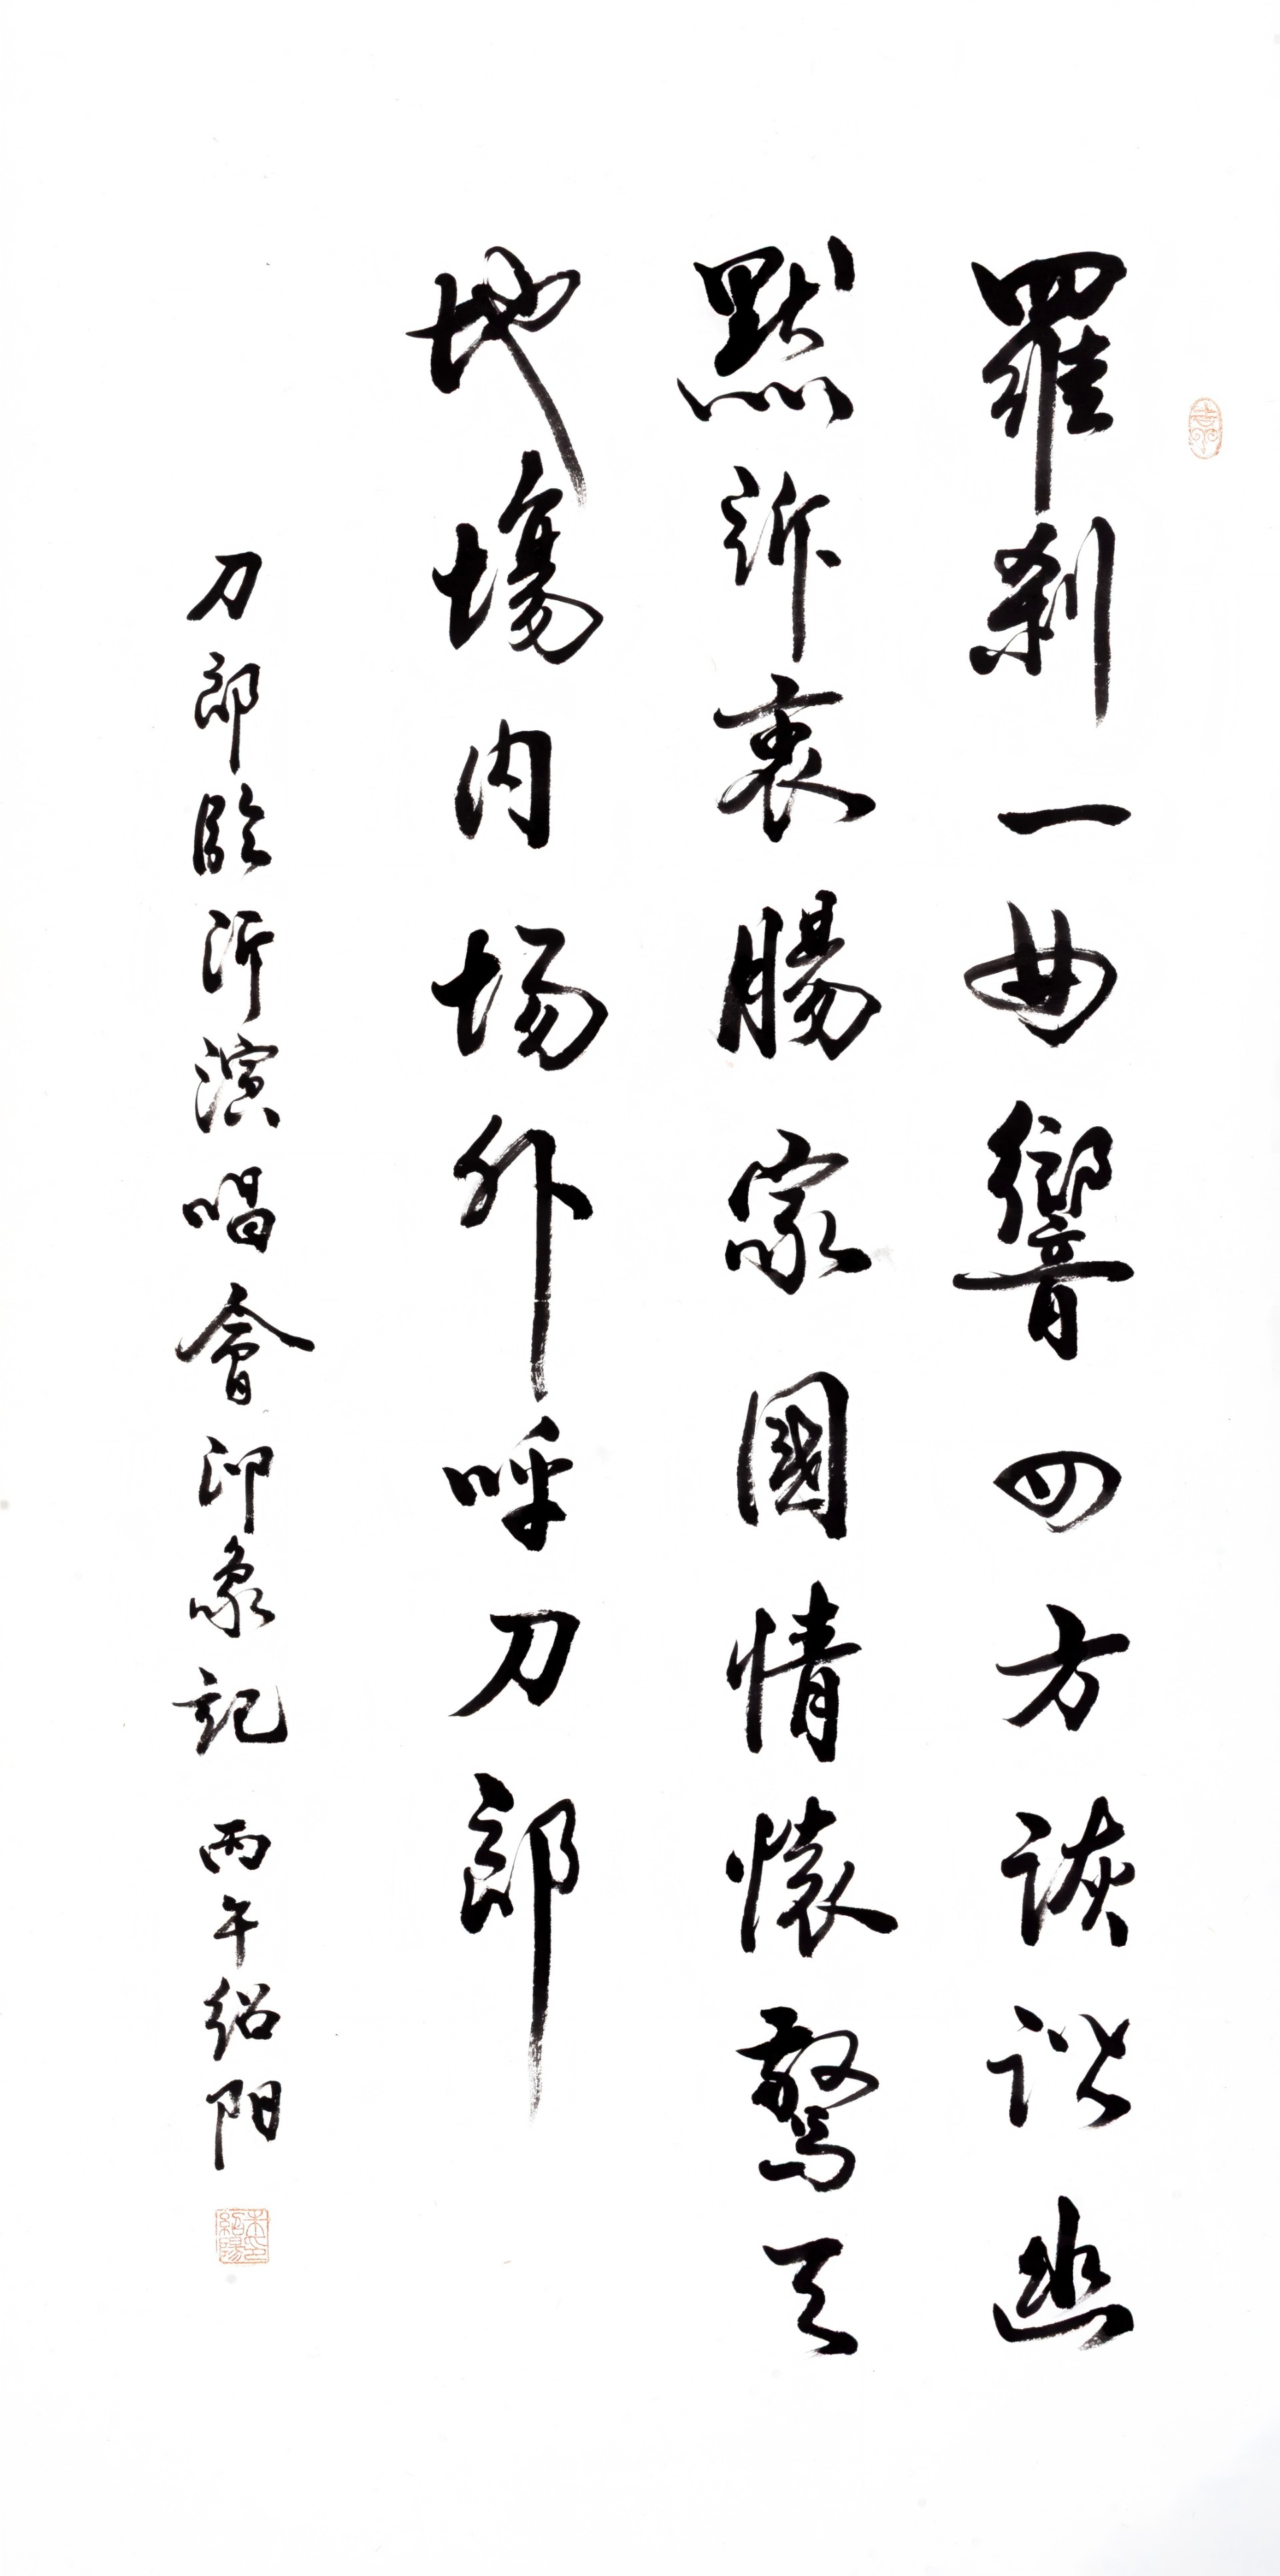 羅刹一曲響四方詼諧幽
默訴衷腸家國情懷驚天
地場内场外呼刀郎
刀郎臨沂演唱會印象記 丙午绍阳